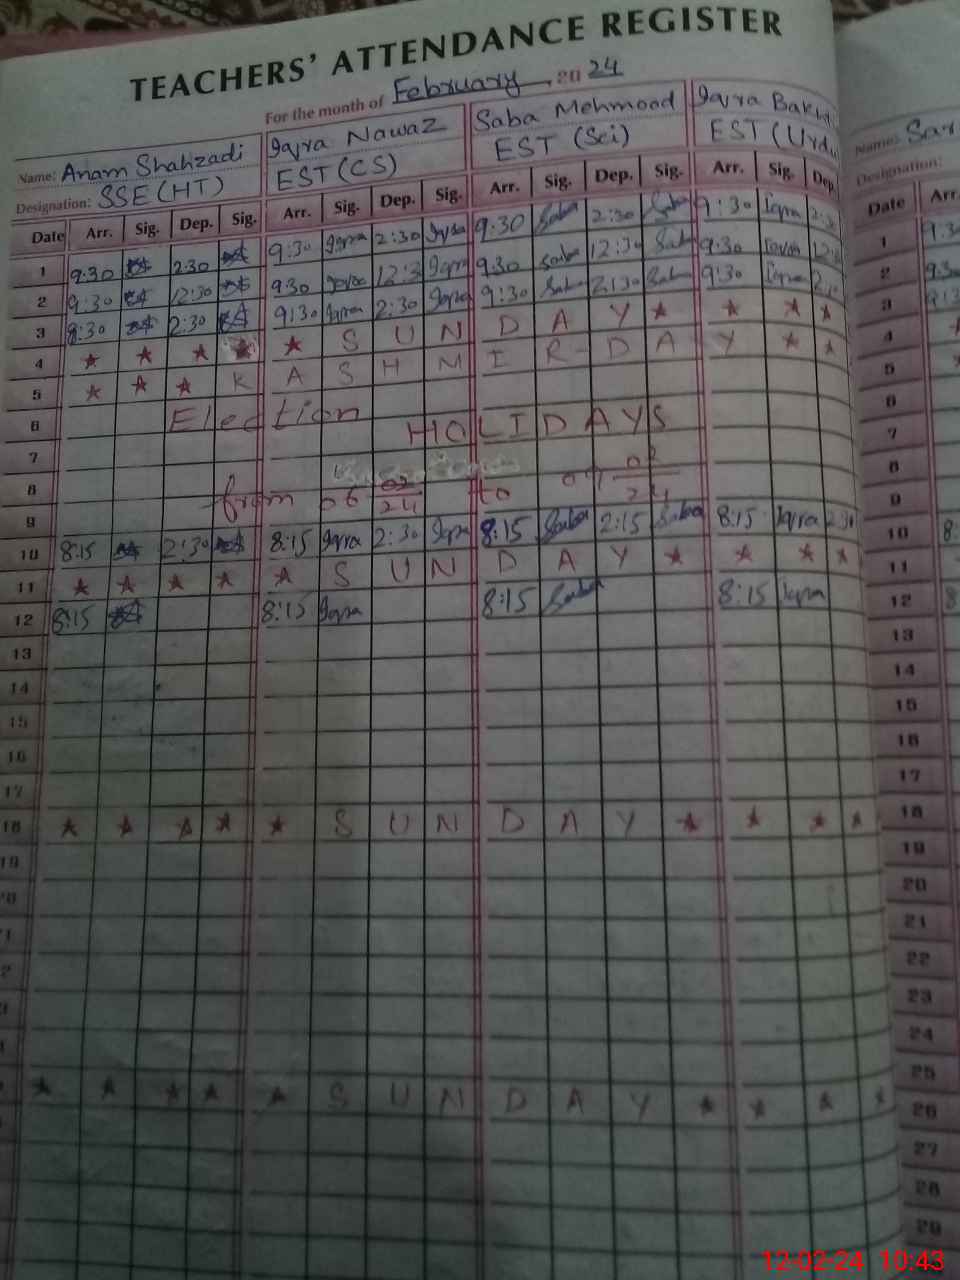 TEACHERS' ATTENDANCE REGISTER
For the month of February, 20 24
Name: Anam Shahzadi Iqra Nawaz Saba Mehmood Iqra
Designation: SSE (HT) EST (CS) EST (Sci) EST (Urdu
Date Arr. Sig. Dep. Sig. Arr. Sig. Dep. Sig. Arr. Sig. Dep. Sig. Arr. Sig. Dep.
1 9:30 2:30 9:30 Iqra 2:30 Iqra 9:30 Saba 2:30 Saba 9:30 Iqra 2:30
2 9:30 12:30 9:30 Iqra 12:3 Iqra 9:30 Saba 12:30 Saba 9:30 Iqra
3 8:30 2:30 9:30 Iqra 2:30 Iqra 9:30 Saba 2:30 Saba 9:30 Iqra
4 ★ ★ ★ ★ ★ S U N D A Y ★ ★ ★ ★
5 ★ ★ ★ K A S H M I R - D A Y ★ ★
6 Election
7 HOLIDAYS
8
9 from 06 02/24 to 09 02/24
10 8:15 2:30 8:15 Iqra 2:30 Iqra 8:15 Saba 2:15 Saba 8:15 Iqra 2:30
11 ★ ★ ★ ★ ★ S U N D A Y ★ ★ ★ ★
12 8:15 8:15 Iqra 8:15 Saba 8:15 Iqra
13
14
15
16
17
18 ★ ★ ★ ★ ★ S U N D A Y ★ ★ ★ ★
19
★ ★ ★ ★ ★ S U N D A Y ★ ★ ★ ★
Name: Sar
Designation:
Date Arr.
1
2
3
4
5
6
7
8
9
10 8:
11
12 8
13
14
15
16
17
18
19
20
21
22
23
24
25
26
27
28
29
12-02-24 10:43